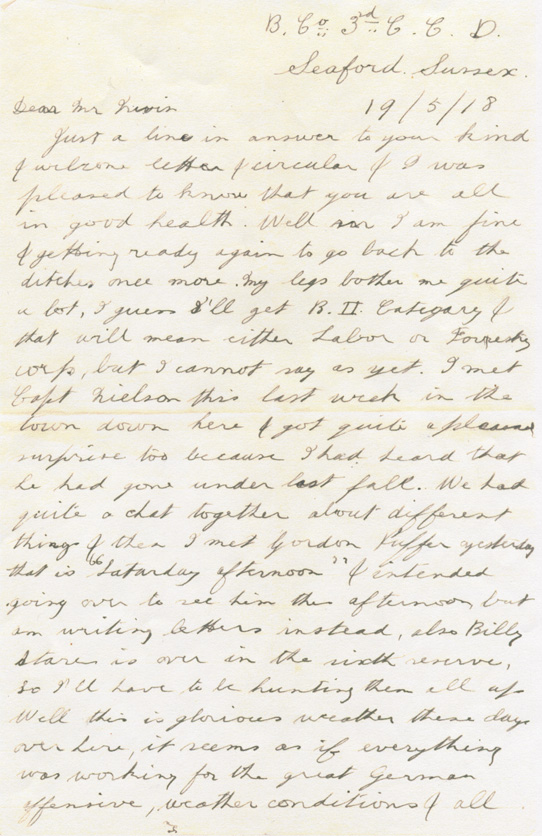 B. Co. 3rd C. C. D.
Seaford. Sussex.
Dear Mr 19/5/18
Just a line in answer to your kind
& welcome letter & circular & I was
pleased to know that you are all
in good health. Well sir I am fine
& getting ready again to go back to the
ditches once more. My legs bother me quite
a lot, I guess I'll get B. II. Category &
that will mean either Labor or Forrestry
corps, but I cannot say as yet. I met
Capt Nielson this last week in the
town down here & got quite a pleasant
surprise too because I had heard that
he had gone under last fall. We had
quite a chat together about different
things & then I met Gordon Puffer yesterday
that is "Saturday afternoon" & intended
going over to see him this afternoon, but
am writing letters instead, also Billy
Stares is over in the sixth reserve,
so I'll have to be hunting them all up
Well this is glorious weather these days
over here, it seems as if everything
was working for the great German
offensive, weather conditions & all